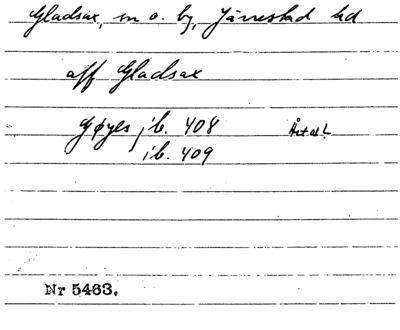 Gladsax, sn o. by, Järrestad hd
aff Gladsax
Gøyes jb. 408 Årtal?
ib. 409
Nr 5463.